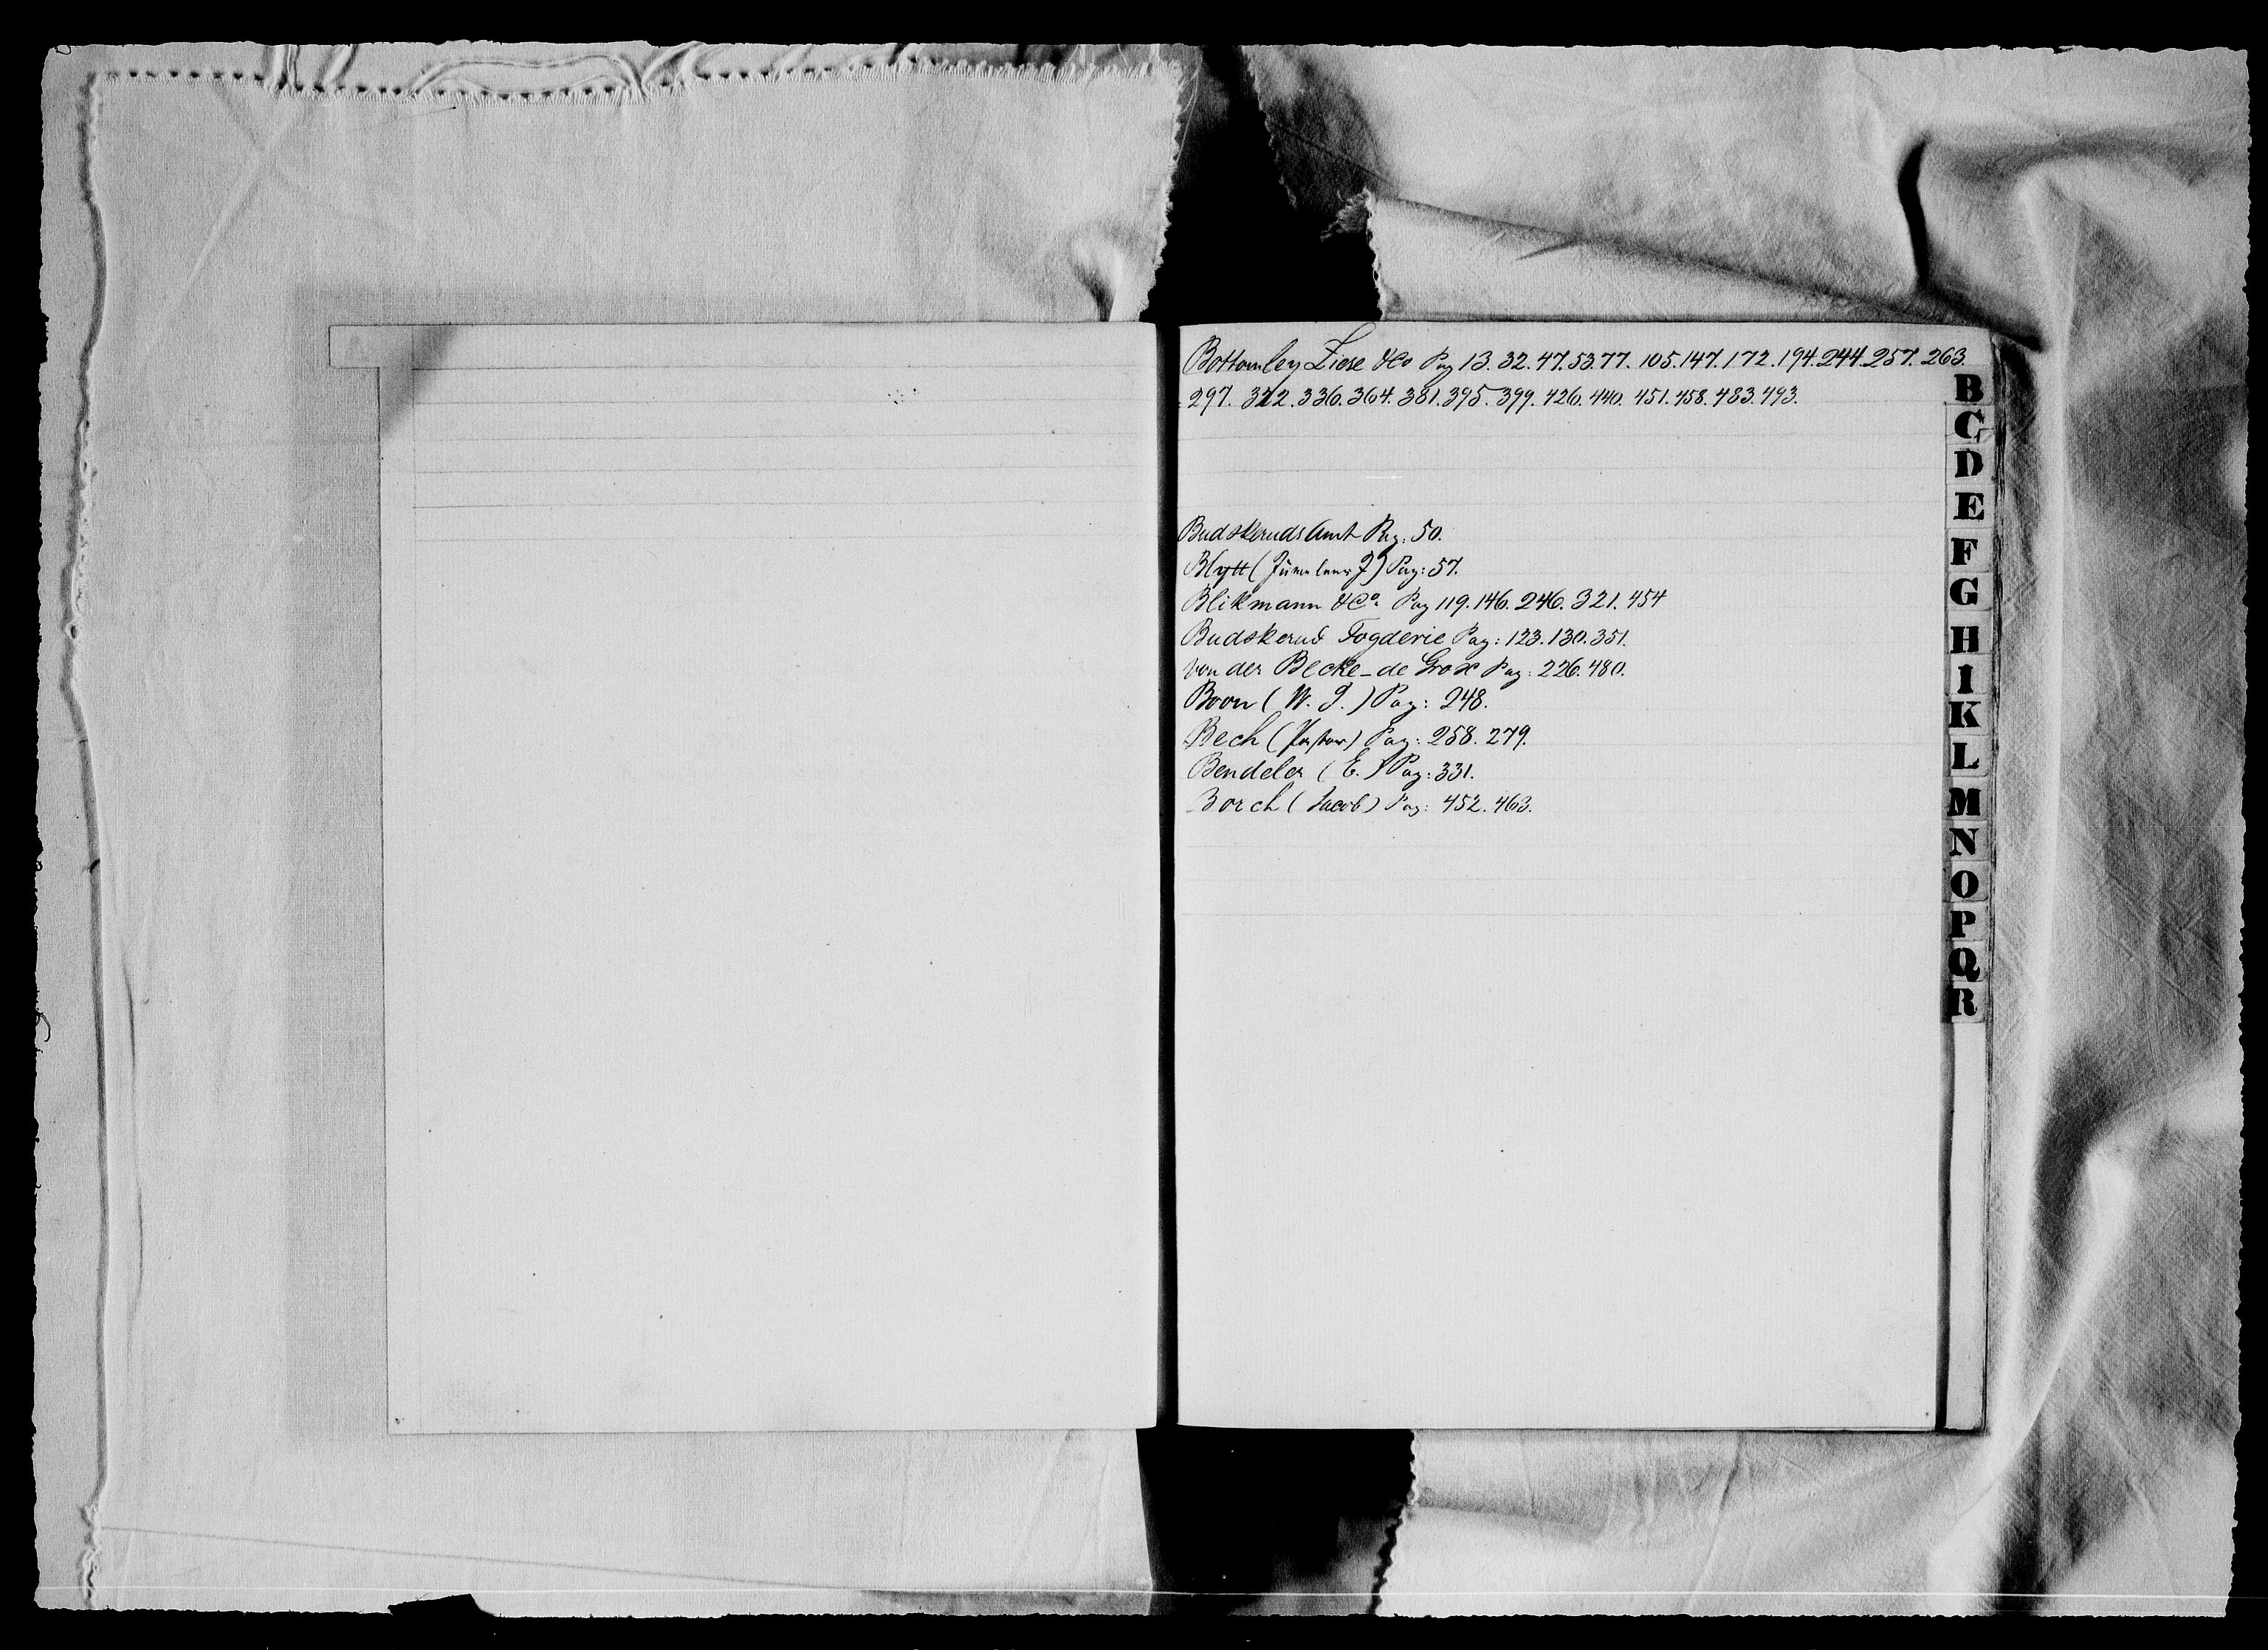 Bottomley Ziese & Co Pag 13. 32. 47. 53. 77. 105. 147. 172. 194. 244. 257. 263.
297. 322. 336. 364. 381. 395. 399. 426. 440. 451. 458. 483. 493.
Budskeruds Amt Pag: 50.
Blytt ( J ) Pag: 57.
Blikmann & Co. Pag 119. 146. 246. 321. 454
Budskerud Fogderie Pag: 123. 130. 351.
von der Becke - de Grox Pag: 226. 480.
Boon ( W. J. ) Pag: 248.
Bech ( Pastor ) Pag: 258. 279.
Bendeler ( E. ) Pag: 331.
Borch ( Jacob ) Pag: 452. 463.
B
C
D
E
F
G
H
I
K
L
M
N
O
P
Q
R